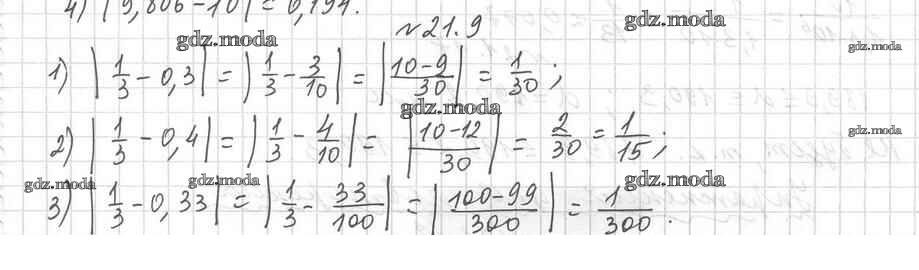 4) |9,806-10| = 0,194.
№21.9
gdz.moda
gdz.moda
gdz.moda
1) | 1/3 - 0,3 | = | 1/3 - 3/10 | = | (10-9)/30 | = 1/30 ;
gdz.moda
2) | 1/3 - 0,4 | = | 1/3 - 4/10 | = | (10-12)/30 | = 2/30 = 1/15 ;
gdz.moda
gdz.moda
gdz.moda
gdz.moda
3) | 1/3 - 0,33 | = | 1/3 - 33/100 | = | (100-99)/300 | = 1/300 .